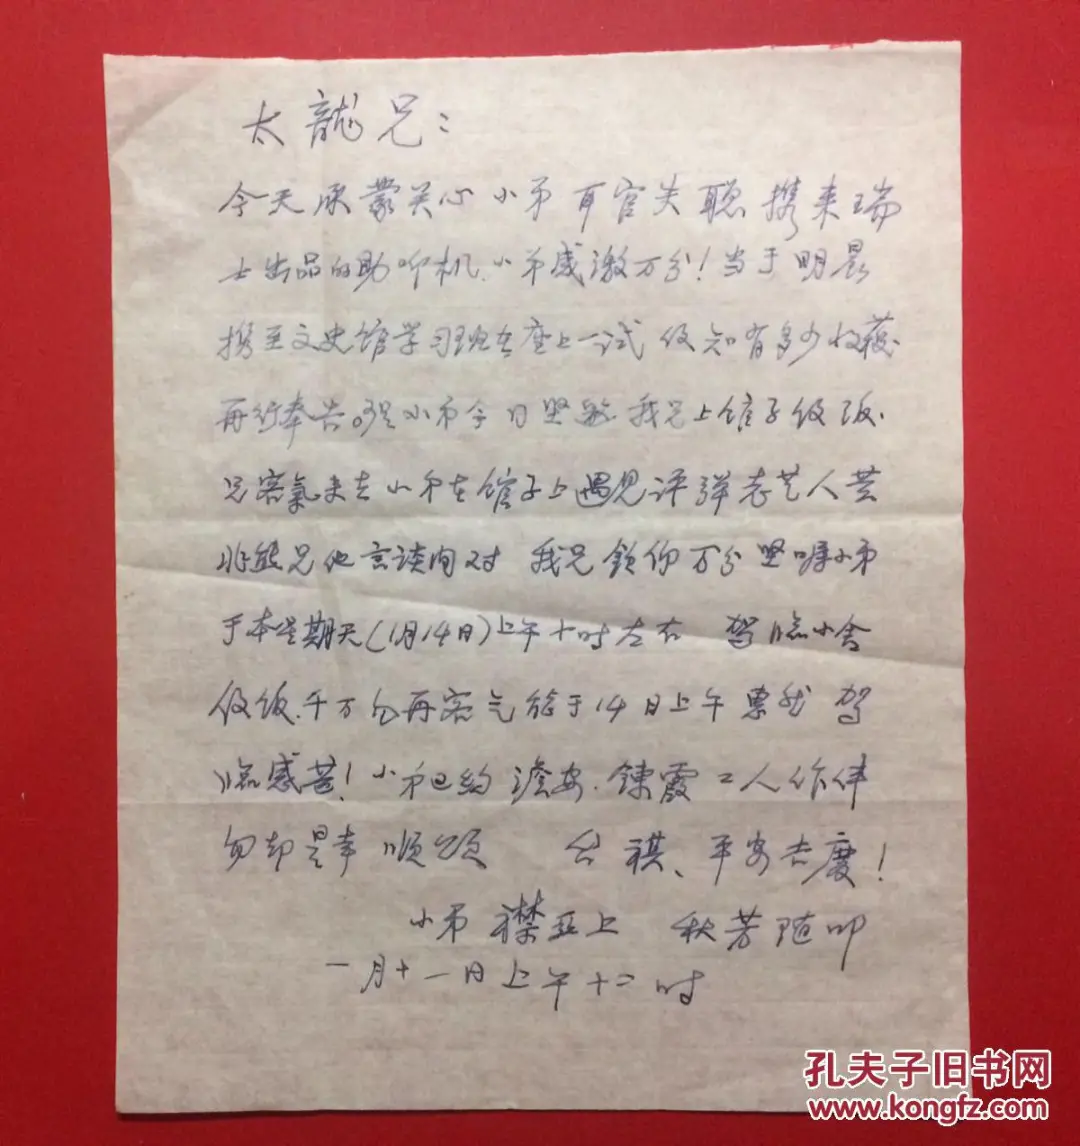 太龍兄：
今天承蒙关心小弟耳官失聪携来瑞
士出品的助听机、小弟感激万分！当于明晨
携至文史馆学习班在座上一试 俟知有多少收获
再行奉告。小弟今日坚邀我兄上馆子便饭、
兄客氣未去小弟在馆子上遇见评弹老艺人黄
兆熊兄他言谈间对 我兄钦仰万分坚嘱小弟
于本星期天(1月14日)上午十时左右 驾临小舍
便饭、千万勿再客气能于14日上午惠然 驾
临感甚！小弟已约澹安、鍊霞二人作伴
勿却是幸 顺颂 台祺、平安吉庆！
小弟襟亚上 秋芳随叩
一月十一日上午十二时
孔夫子旧书网
www.kongfz.com